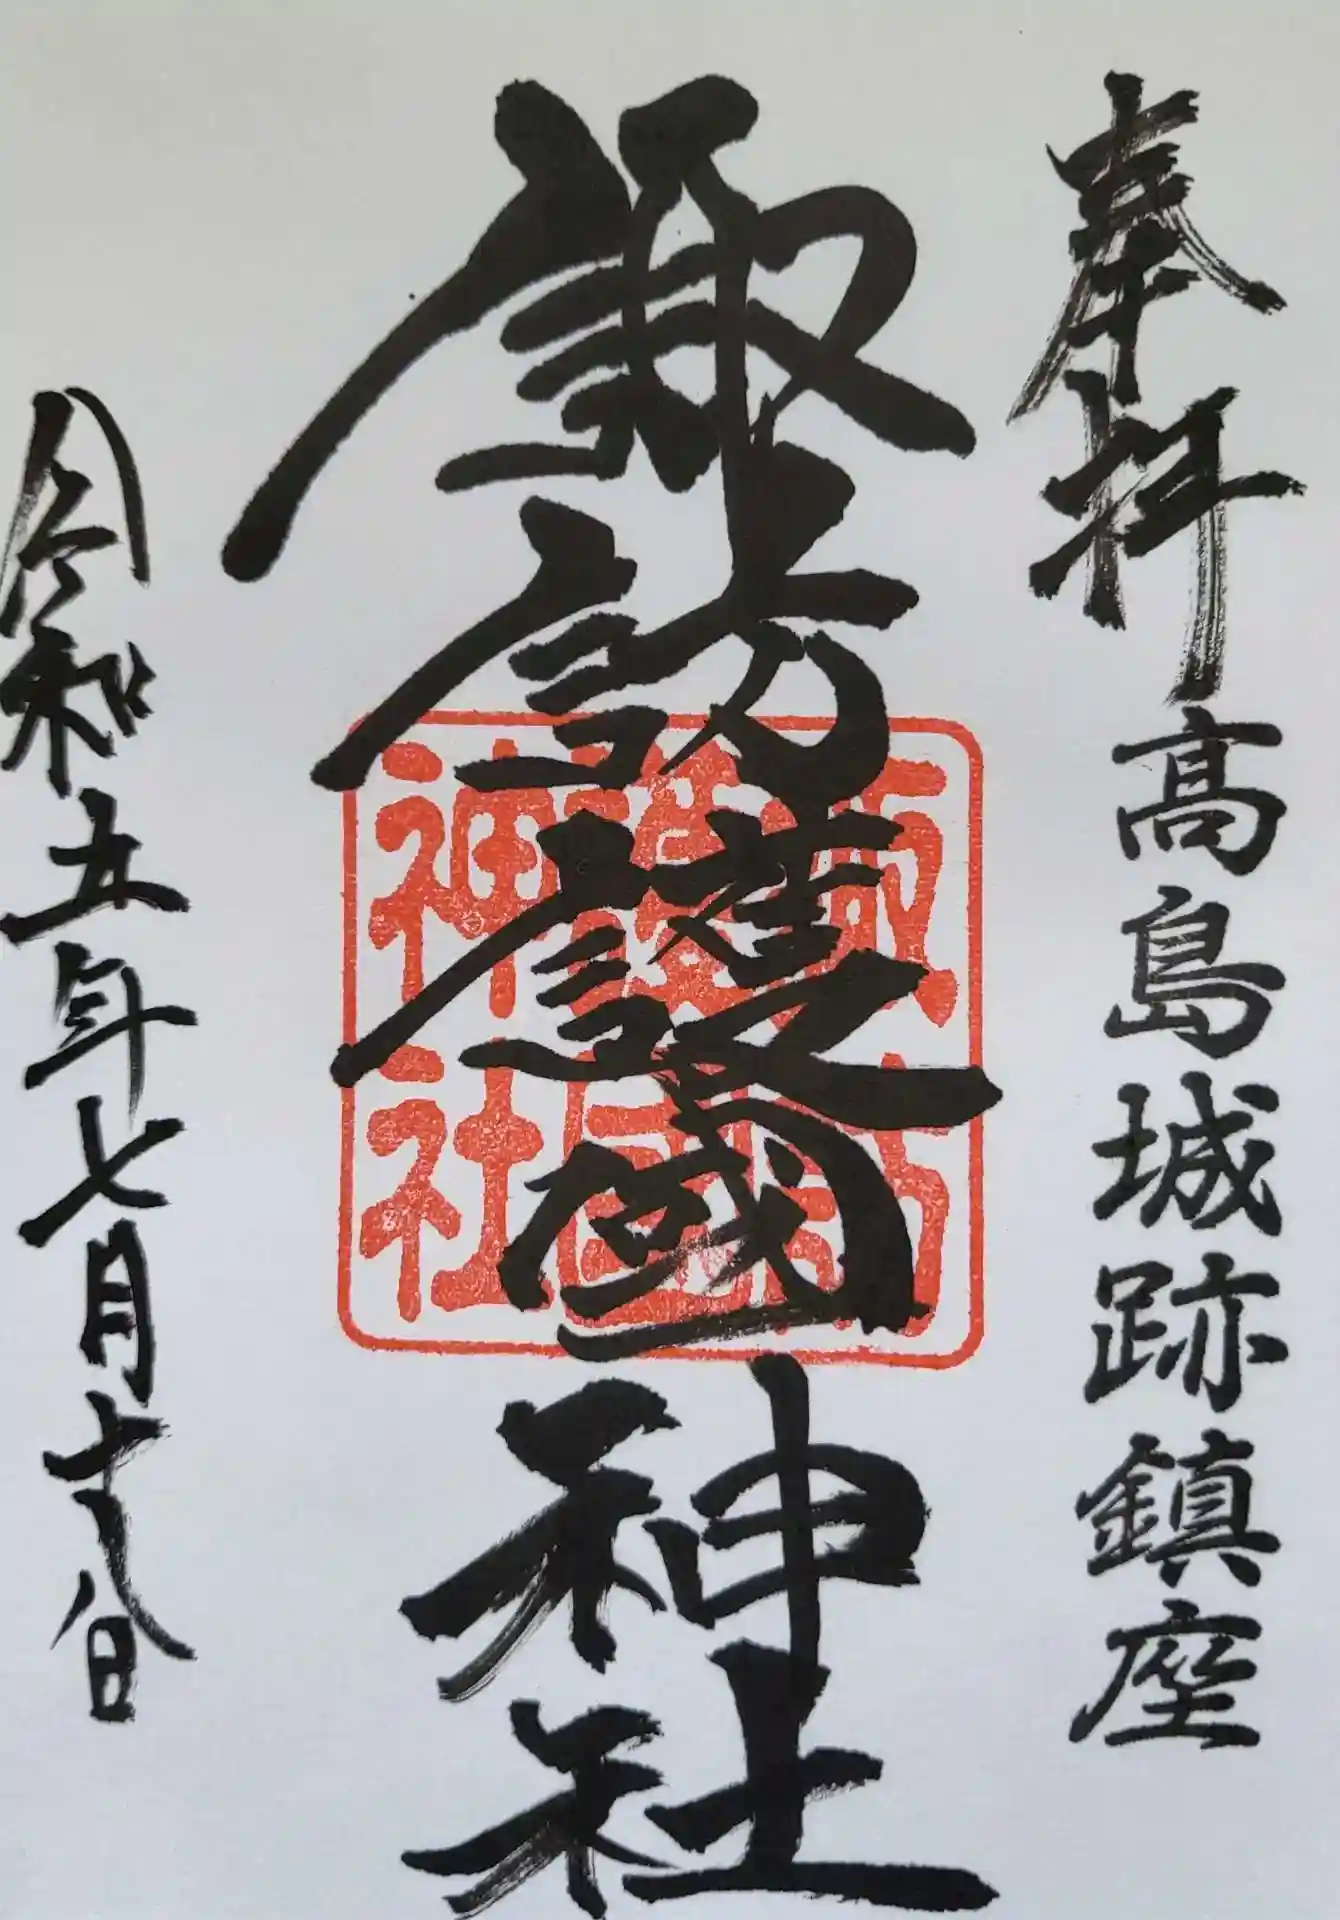 奉拝 高島城跡鎮座
諏訪護國神社
諏訪
護国
神社
令和五年七月十八日